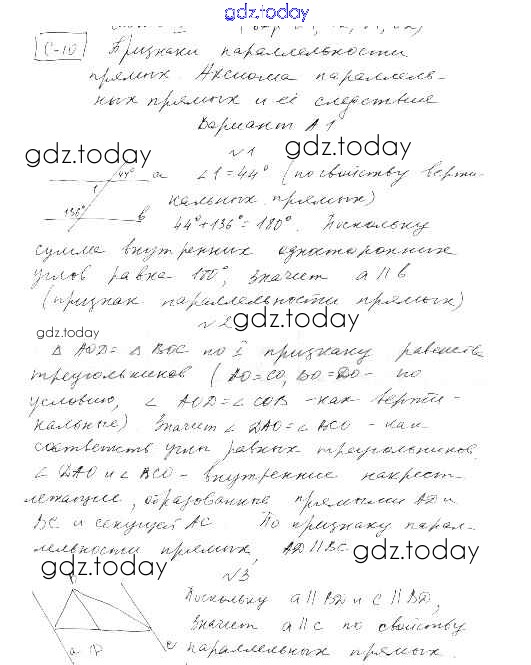 gdz.today
С-10 Признаки параллельности
прямых Аксиома параллель-
ных прямых и её следствие
Вариант А1
gdz.today
gdz.today
№1
44° а ∠1=44° (по свойству верти-
1
кальных прямых)
136° в 44°+136°=180°. Поскольку
сумма внутренних односторонних
углов равна 180°, значит a || b
(признак параллельности прямых)
gdz.today
№2
gdz.today
△ AOD = △ BOC по I признаку равенств
треугольников (AO=CO, BO=DO - по
условию, ∠ AOD=∠ COB - как верти-
кальные) Значит ∠ DAO=∠ BCO - как
соответств углы равных треугольников.
∠ DAO и ∠ BCO - внутренние накрест-
лежащие, образованные прямыми AD и
BC и секущей AC По признаку парал-
лельности прямых, AD || BC
gdz.today
gdz.today
№3
B
Поскольку a || BD и c || BD,
Значит a || c по свойству
a D c параллельных прямых.